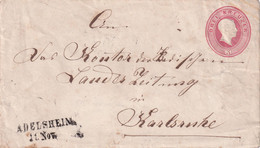 An
das Kontor der Badischen
Landes Zeitung
in
Karlsruhe
ADELSHEIM
21 Nov